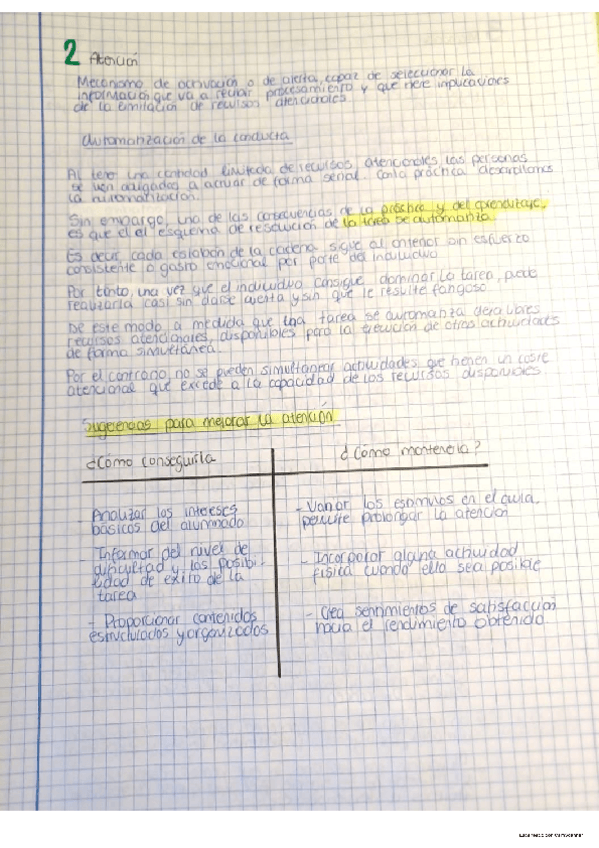 2 Atención
Mecanismo de activación o de alerta, capaz de seleccionar la
información que va a recibir procesamiento y que tiene implicaciones
de la limitación de recursos atencionales
Automatización de la conducta
Al tener una cantidad limitada de recursos atencionales, las personas
se ven obligadas a actuar de forma serial. Con la práctica desarrollamos
la automatización.
Sin embargo, una de las consecuencias de la práctica y del aprendizaje,
es que el el esquema de resolución de la tarea se automatiza.
Es decir, cada eslabón de la cadena sigue al anterior sin esfuerzo
consistente o gasto emocional por parte del individuo
Por tanto, una vez que el individuo consigue dominar la tarea, puede
realizarla casi sin darse cuenta y sin que le resulte fangoso
De este modo, a medida que una tarea se automatiza deja libres
recursos atencionales, disponibles para la ejecución de otras actividades
de forma simultánea.
Por el contrario, no se pueden simultanear actividades que tienen un coste
atencional que excede a la capacidad de los recursos disponibles.
Sugerencias para mejorar la atención
¿Cómo conseguirla ¿Cómo mantenerla?
- Analizar los intereses
básicos del alumnado
Informar del nivel de
dificultad y las posibi-
lidad de exito de la
tarea
- Proporcionar contenidos
estructurados y organizados
- Variar los estímulos en el aula
permite prolongar la atención
- Incorporar alguna actividad
física cuando ello sea posible
- Crea sentimientos de satisfacción
hacia el rendimiento obtenido